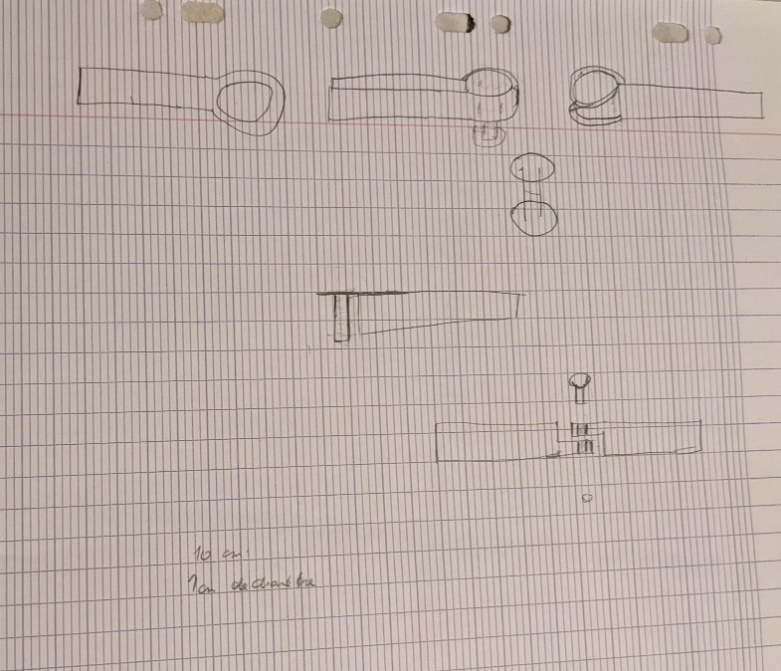 10 cm
1cm de diamètre